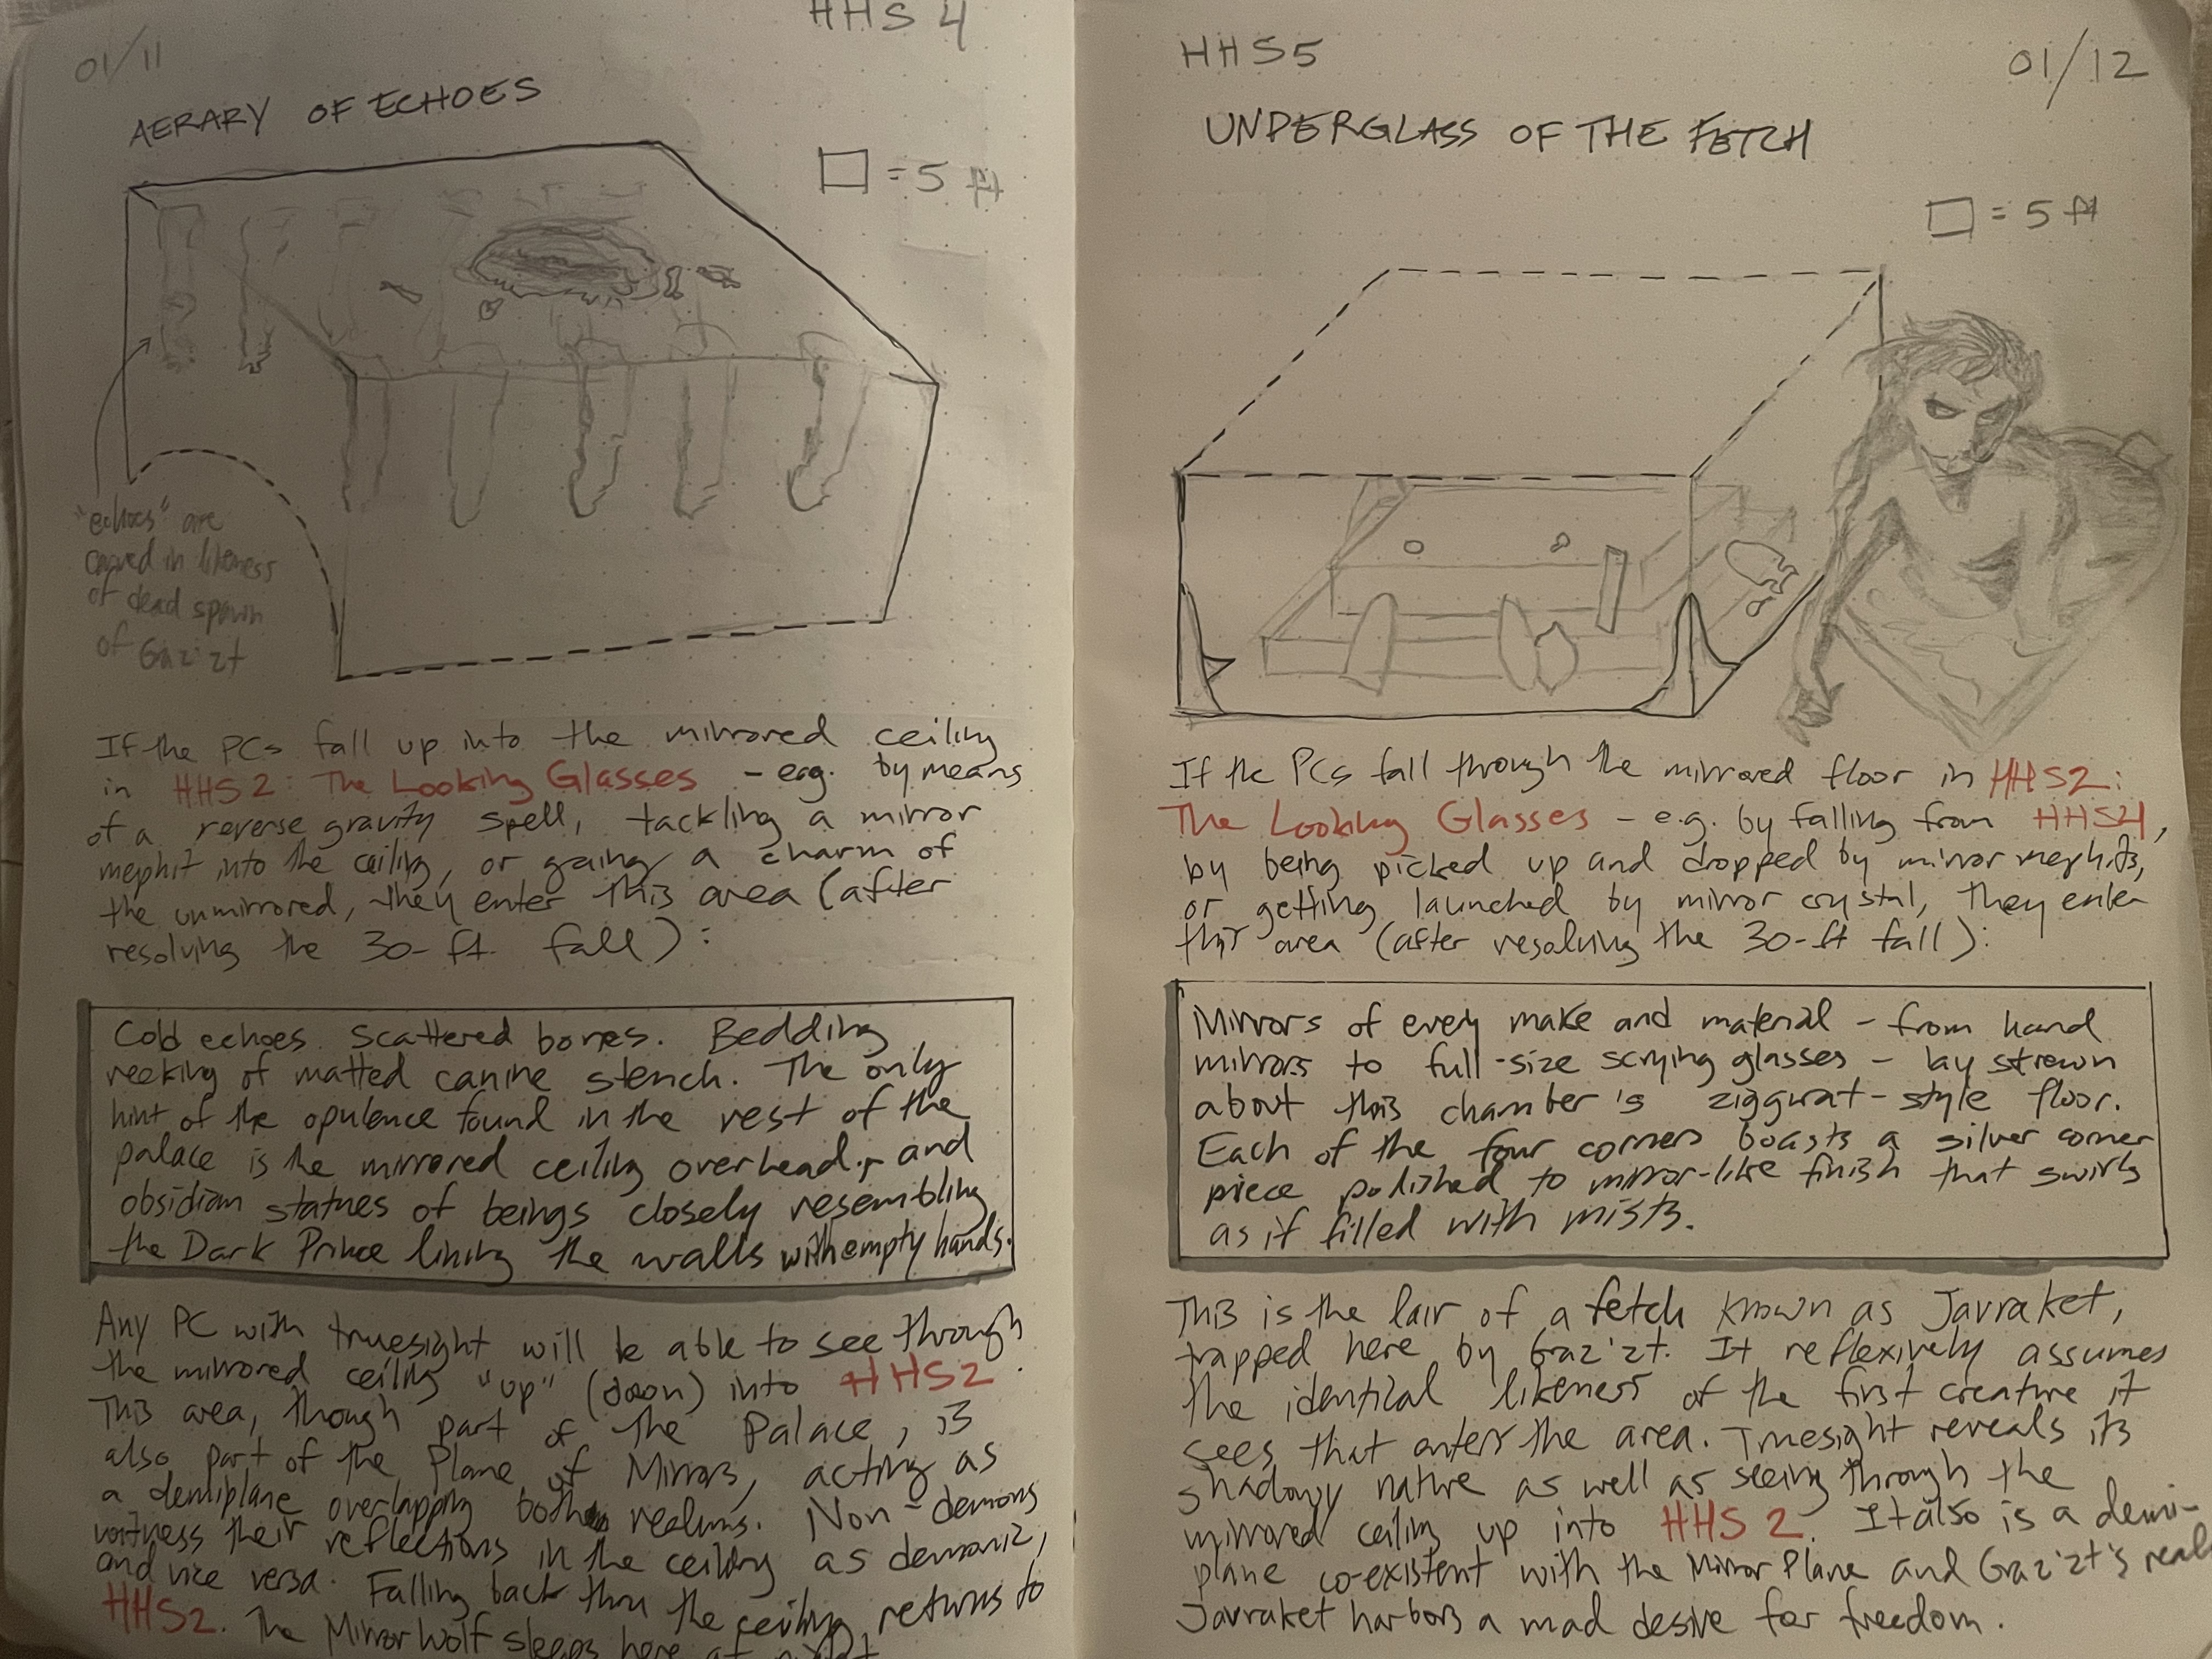 01/11
HHS 4
AERARY OF ECHOES
□ = 5 ft
"echoes" are
carved in likeness
of dead spawn
of Graz'zt
If the PCs fall up into the mirrored ceiling
in HHS2: The Looking Glasses - e.g. by means
of a reverse gravity spell, tackling a mirror
mephit into the ceiling, or going a charm of
the unmirrored, they enter this area (after
resolving the 30-ft. fall):
Cold echoes. Scattered bones. Bedding
reeking of matted canine stench. The only
hint of the opulence found in the rest of the
palace is the mirrored ceiling overhead, and
obsidian statues of beings closely resembling
the Dark Prince lining the walls with empty hands.
Any PC with truesight will be able to see through
the mirrored ceiling "up" (down) into HHS2.
This area, though part of the Palace, is
also part of the Plane of Mirrors, acting as
a demiplane overlapping both realms. Non-demons
witness their reflections in the ceiling as demonic,
and vice versa. Falling back thru the ceiling returns to
HHS2. The Mirror Wolf sleeps here at night
HHS5
01/12
UNDERGLASS OF THE FETCH
□ = 5 ft
If the PCs fall through the mirrored floor in HHS2:
The Looking Glasses - e.g. by falling from HHS4,
by being picked up and dropped by mirror mephits,
or getting launched by mirror crystal, they enter
this area (after resolving the 30-ft fall):
Mirrors of every make and material - from hand
mirrors to full-size scrying glasses - lay strewn
about this chamber's ziggurat-style floor.
Each of the four corners boasts a silver corner
piece polished to mirror-like finish that swirls
as if filled with mists.
This is the lair of a fetch known as Javraket,
trapped here by Graz'zt. It reflexively assumes
the identical likeness of the first creature it
sees that enters the area. Truesight reveals its
shadowy nature as well as seeing through the
mirrored ceiling up into HHS2. It also is a demi-
plane co-existent with the Mirror Plane and Graz'zt's realm
Javraket harbors a mad desire for freedom.